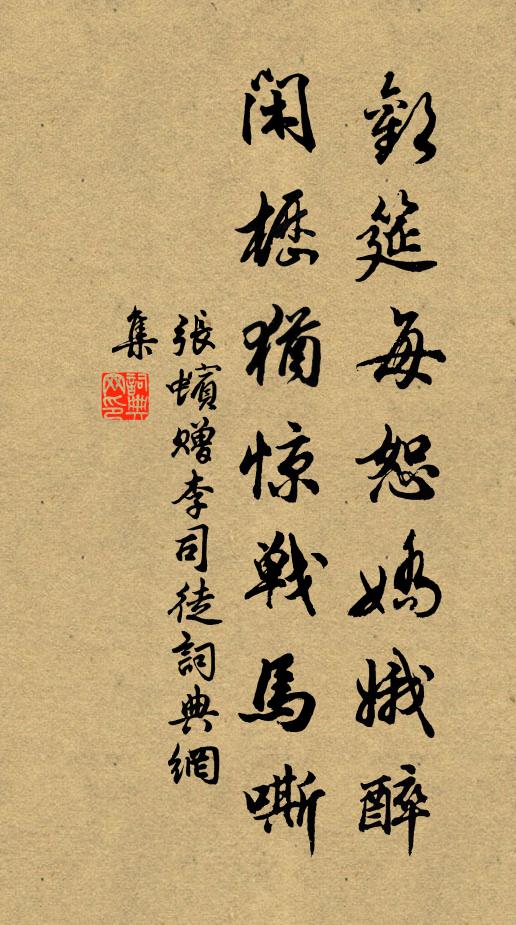 歡筵每恕嬌娥醉
閑櫪猶惊戰馬嘶
張蠙贈李司徒詞典網
集
詞典網印